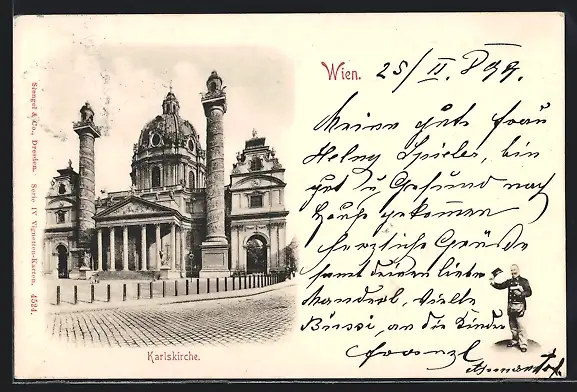 Stengel & Co., Dresden. Serie IV Vignetten-Karten, 4524.
Wien. 25/II. 899.
Meine gute Frau
Spieler, bin
gut u Gesund nach
Hause gekommen
herzliche Grüße
samt deinen lieben
Manderl, Vielte
Bussi, an die Kinder
Franzl
Karlskirche.